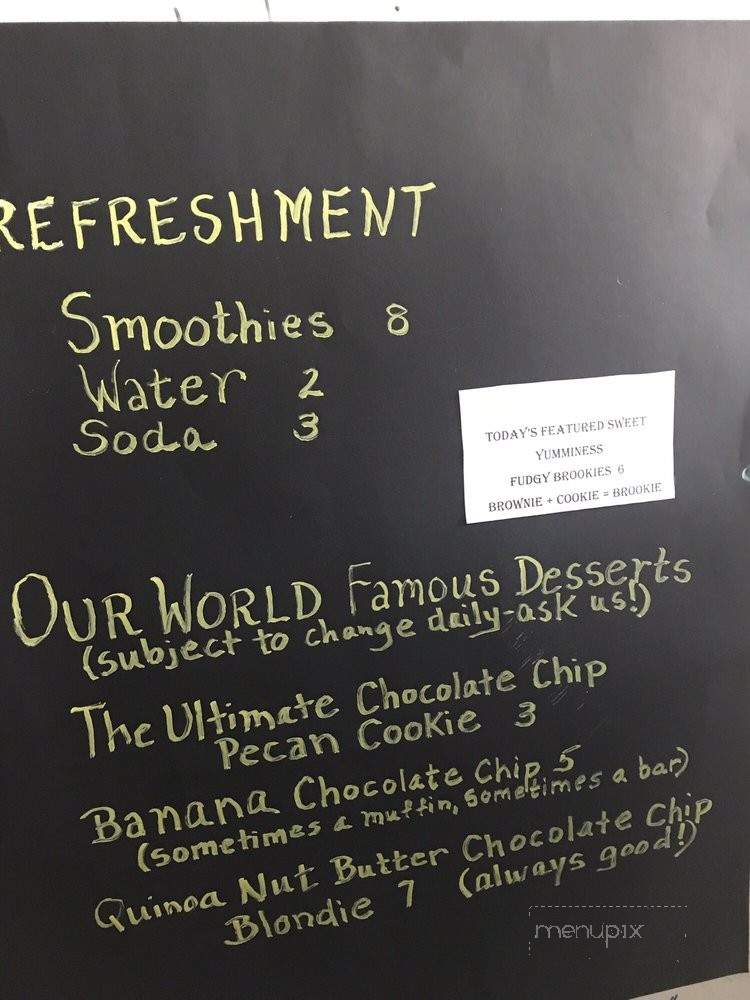 REFRESHMENT
Smoothies 8
Water 2
Soda 3
TODAY'S FEATURED SWEET
YUMMINESS
FUDGY BROOKIES 6
BROWNIE + COOKIE = BROOKIE
OUR WORLD Famous Desserts
(subject to change daily-ask us!)
The Ultimate Chocolate Chip
Pecan Cookie 3
Banana Chocolate Chip 5
(sometimes a muffin, sometimes a bar)
Quinoa Nut Butter Chocolate Chip
Blondie 7 (always good!)
menupix